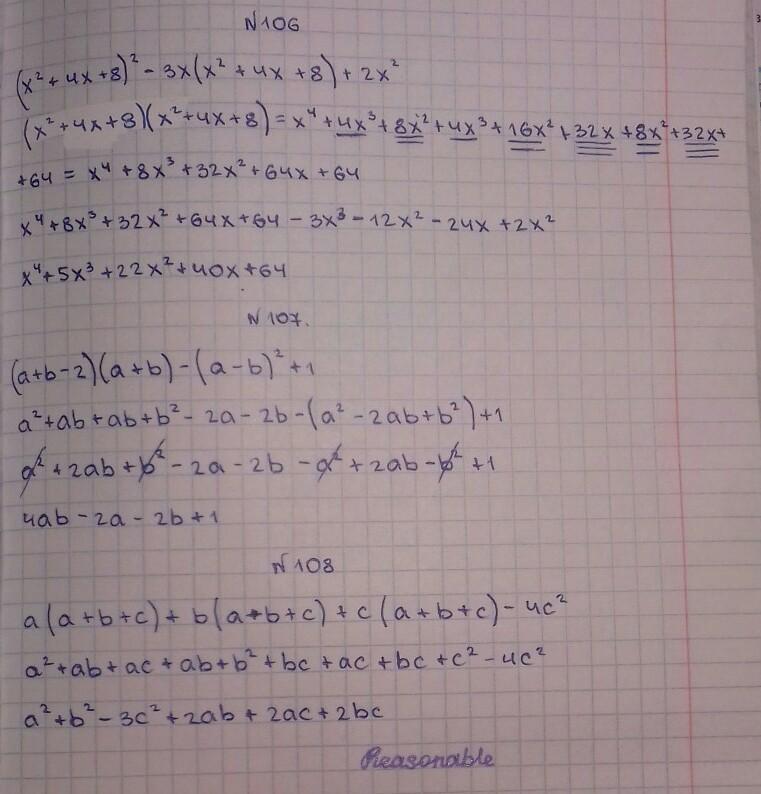 N106
(x² + 4x + 8)² - 3x(x² + 4x + 8) + 2x²
(x² + 4x + 8)(x² + 4x + 8) = x⁴ + 4x³ + 8x² + 4x³ + 16x² + 32x + 8x² + 32x +
+ 64 = x⁴ + 8x³ + 32x² + 64x + 64
x⁴ + 8x³ + 32x² + 64x + 64 - 3x³ - 12x² - 24x + 2x²
x⁴ + 5x³ + 22x² + 40x + 64
N107.
(a + b - 2)(a + b) - (a - b)² + 1
a² + ab + ab + b² - 2a - 2b - (a² - 2ab + b²) + 1
a² + 2ab + b² - 2a - 2b - a² + 2ab - b² + 1
4ab - 2a - 2b + 1
N108
a(a + b + c) + b(a + b + c) + c(a + b + c) - 4c²
a² + ab + ac + ab + b² + bc + ac + bc + c² - 4c²
a² + b² - 3c² + 2ab + 2ac + 2bc
Reasonable